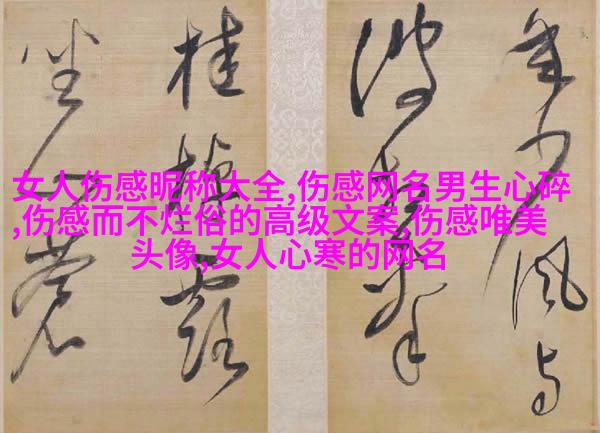 女人伤感昵称大全,伤感网名男生心碎
,伤感而不烂俗的高级文案,伤感唯美
头像,女人心寒的网名
少風与
波
桂露
坐